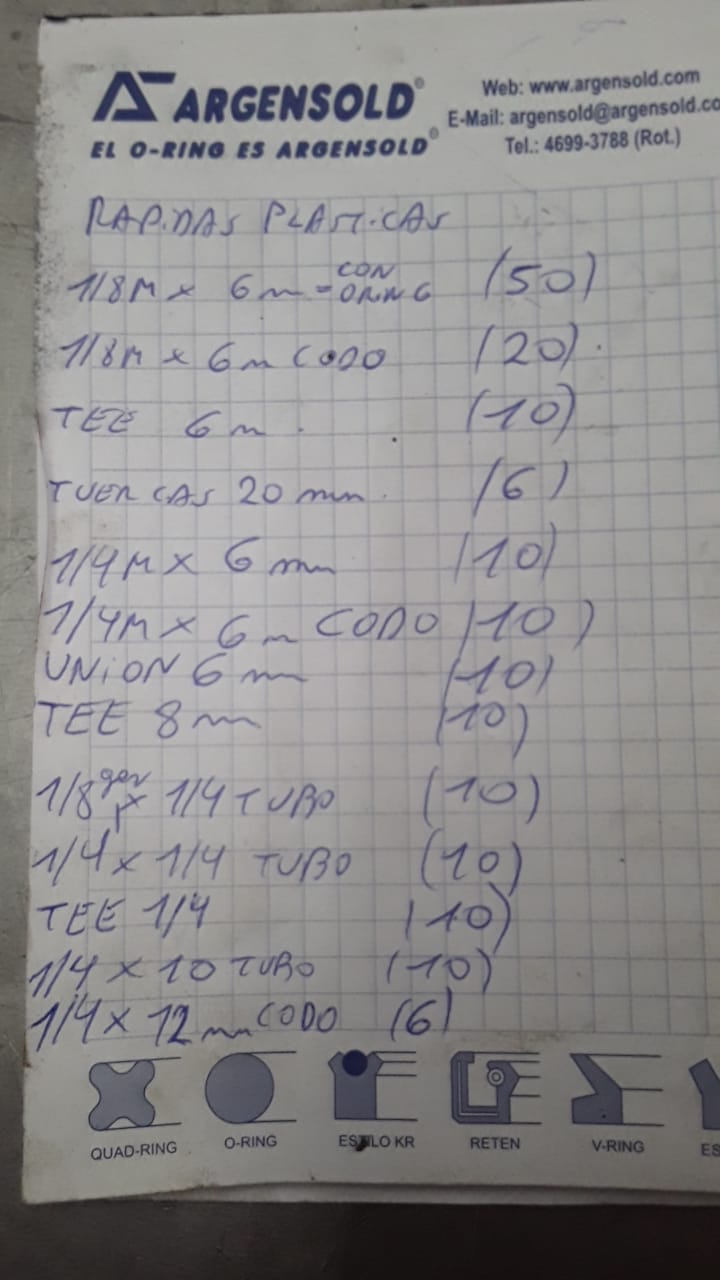 ARGENSOLD®
EL O-RING ES ARGENSOLD®
Web: www.argensold.com
E-Mail: argensold@argensold.co
Tel.: 4699-3788 (Rot.)
RAPIDAS PLASTICAS
1/8M x 6m = CON ORING (50)
1/8M x 6m CODO (20)
TEE 6m (10)
TUERCAS 20 mm (6)
1/4M x 6 mm (10)
1/4M x 6m CODO (10)
UNION 6 mm (10)
TEE 8 mm (10)
1/8 x 1/4 TUBO (10)
1/4 x 1/4 TUBO (10)
TEE 1/4 (10)
1/4 x 10 TUBO (10)
1/4 x 12mm CODO (6)
QUAD-RING O-RING ESTILO KR RETEN V-RING ES